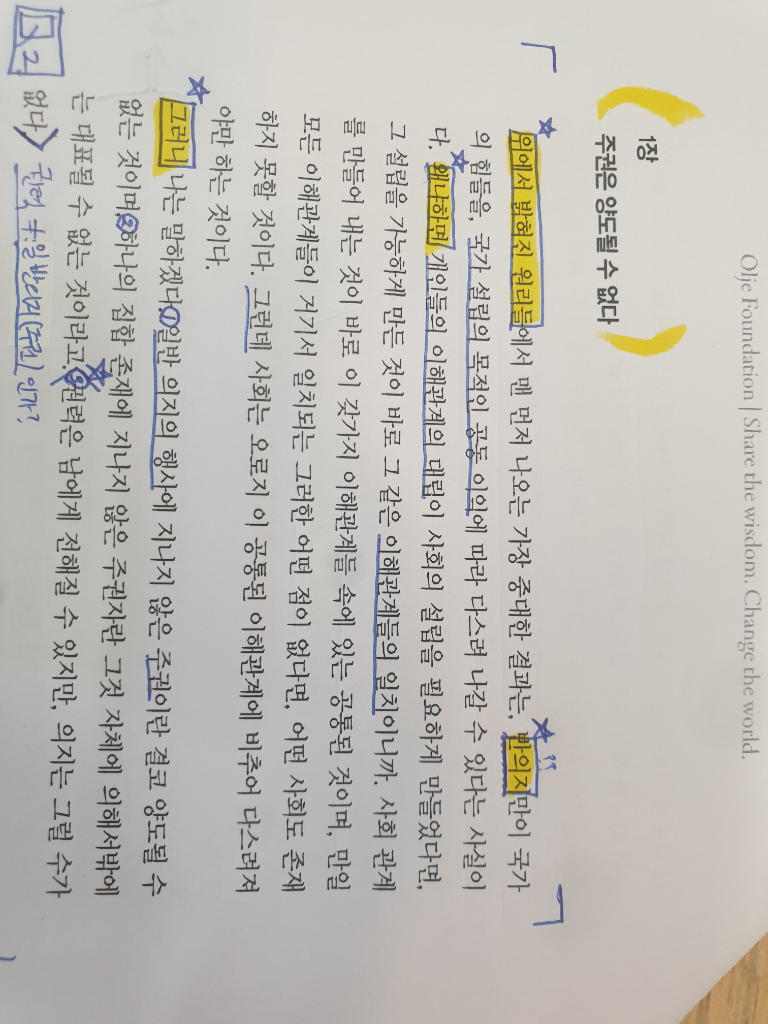 Olje Foundation | Share the wisdom. Change the world.
1장
주권은 양도될 수 없다
위에서 밝혀진 원리들에서 맨 먼저 나오는 가장 중대한 결과는, 반의지만이 국가
의 힘들을, 국가 설립의 목적인 공동 이익에 따라 다스려 나갈 수 있다는 사실이
다. 왜냐하면 개인들의 이해관계의 대립이 사회의 설립을 필요하게 만들었다면,
그 설립을 가능하게 만든 것이 바로 그 같은 이해관계들의 일치이니까. 사회 관계
를 만들어 내는 것이 바로 이 갖가지 이해관계들 속에 있는 공통된 것이며, 만일
모든 이해관계들이 거기서 일치되는 그러한 어떤 점이 없다면, 어떤 사회도 존재
하지 못할 것이다. 그런데 사회는 오로지 이 공통된 이해관계에 비추어 다스려져
야만 하는 것이다.
그러니 나는 말하겠다 ① 일반 의지의 행사에 지나지 않은 주권이란 결코 양도될 수
없는 것이며, ② 하나의 집합 존재에 지나지 않은 주권자란 그것 자체에 의해서밖에
는 대표될 수 없는 것이라고. ③ 권력은 남에게 전해질 수 있지만, 의지는 그럴 수가
없다 권력 ≠ 일반의지(주권)인가?
2